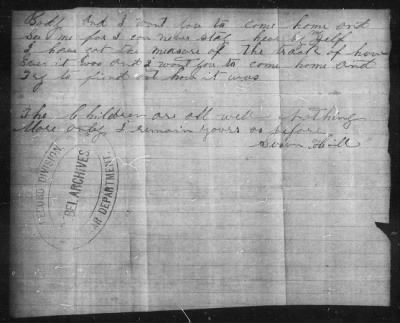 Body And I Want you to come home and
See me for I can never stay hear by Self
I have got the measure of the track of how
Ever it was And I want you to come home and
Try to find out how it was
The Children are all well nothing
More only I remain yours as before
Hill
RECORD DIVISION
REB. ARCHIVES
WAR DEPARTMENT